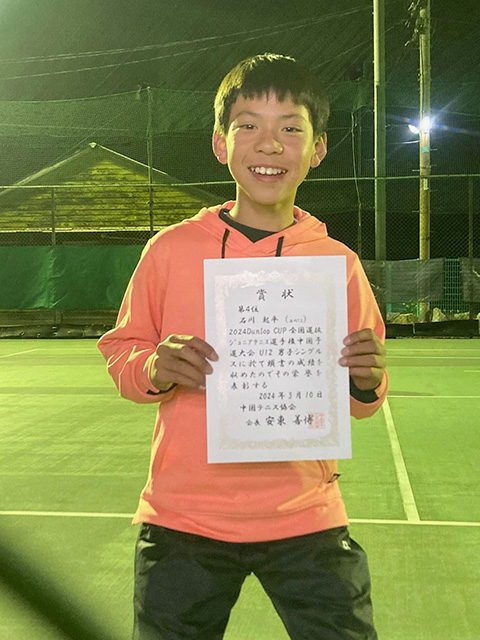 賞状
第4位
石川 起平
2024Dunlop CUP 全国選抜
ジュニアテニス選手権中国予
選大会 U12 男子シングル
スに於て頭書の成績を
収めたのでその栄誉を
表彰する
2024年3月10日
中国テニス協会
会長 安東 善博